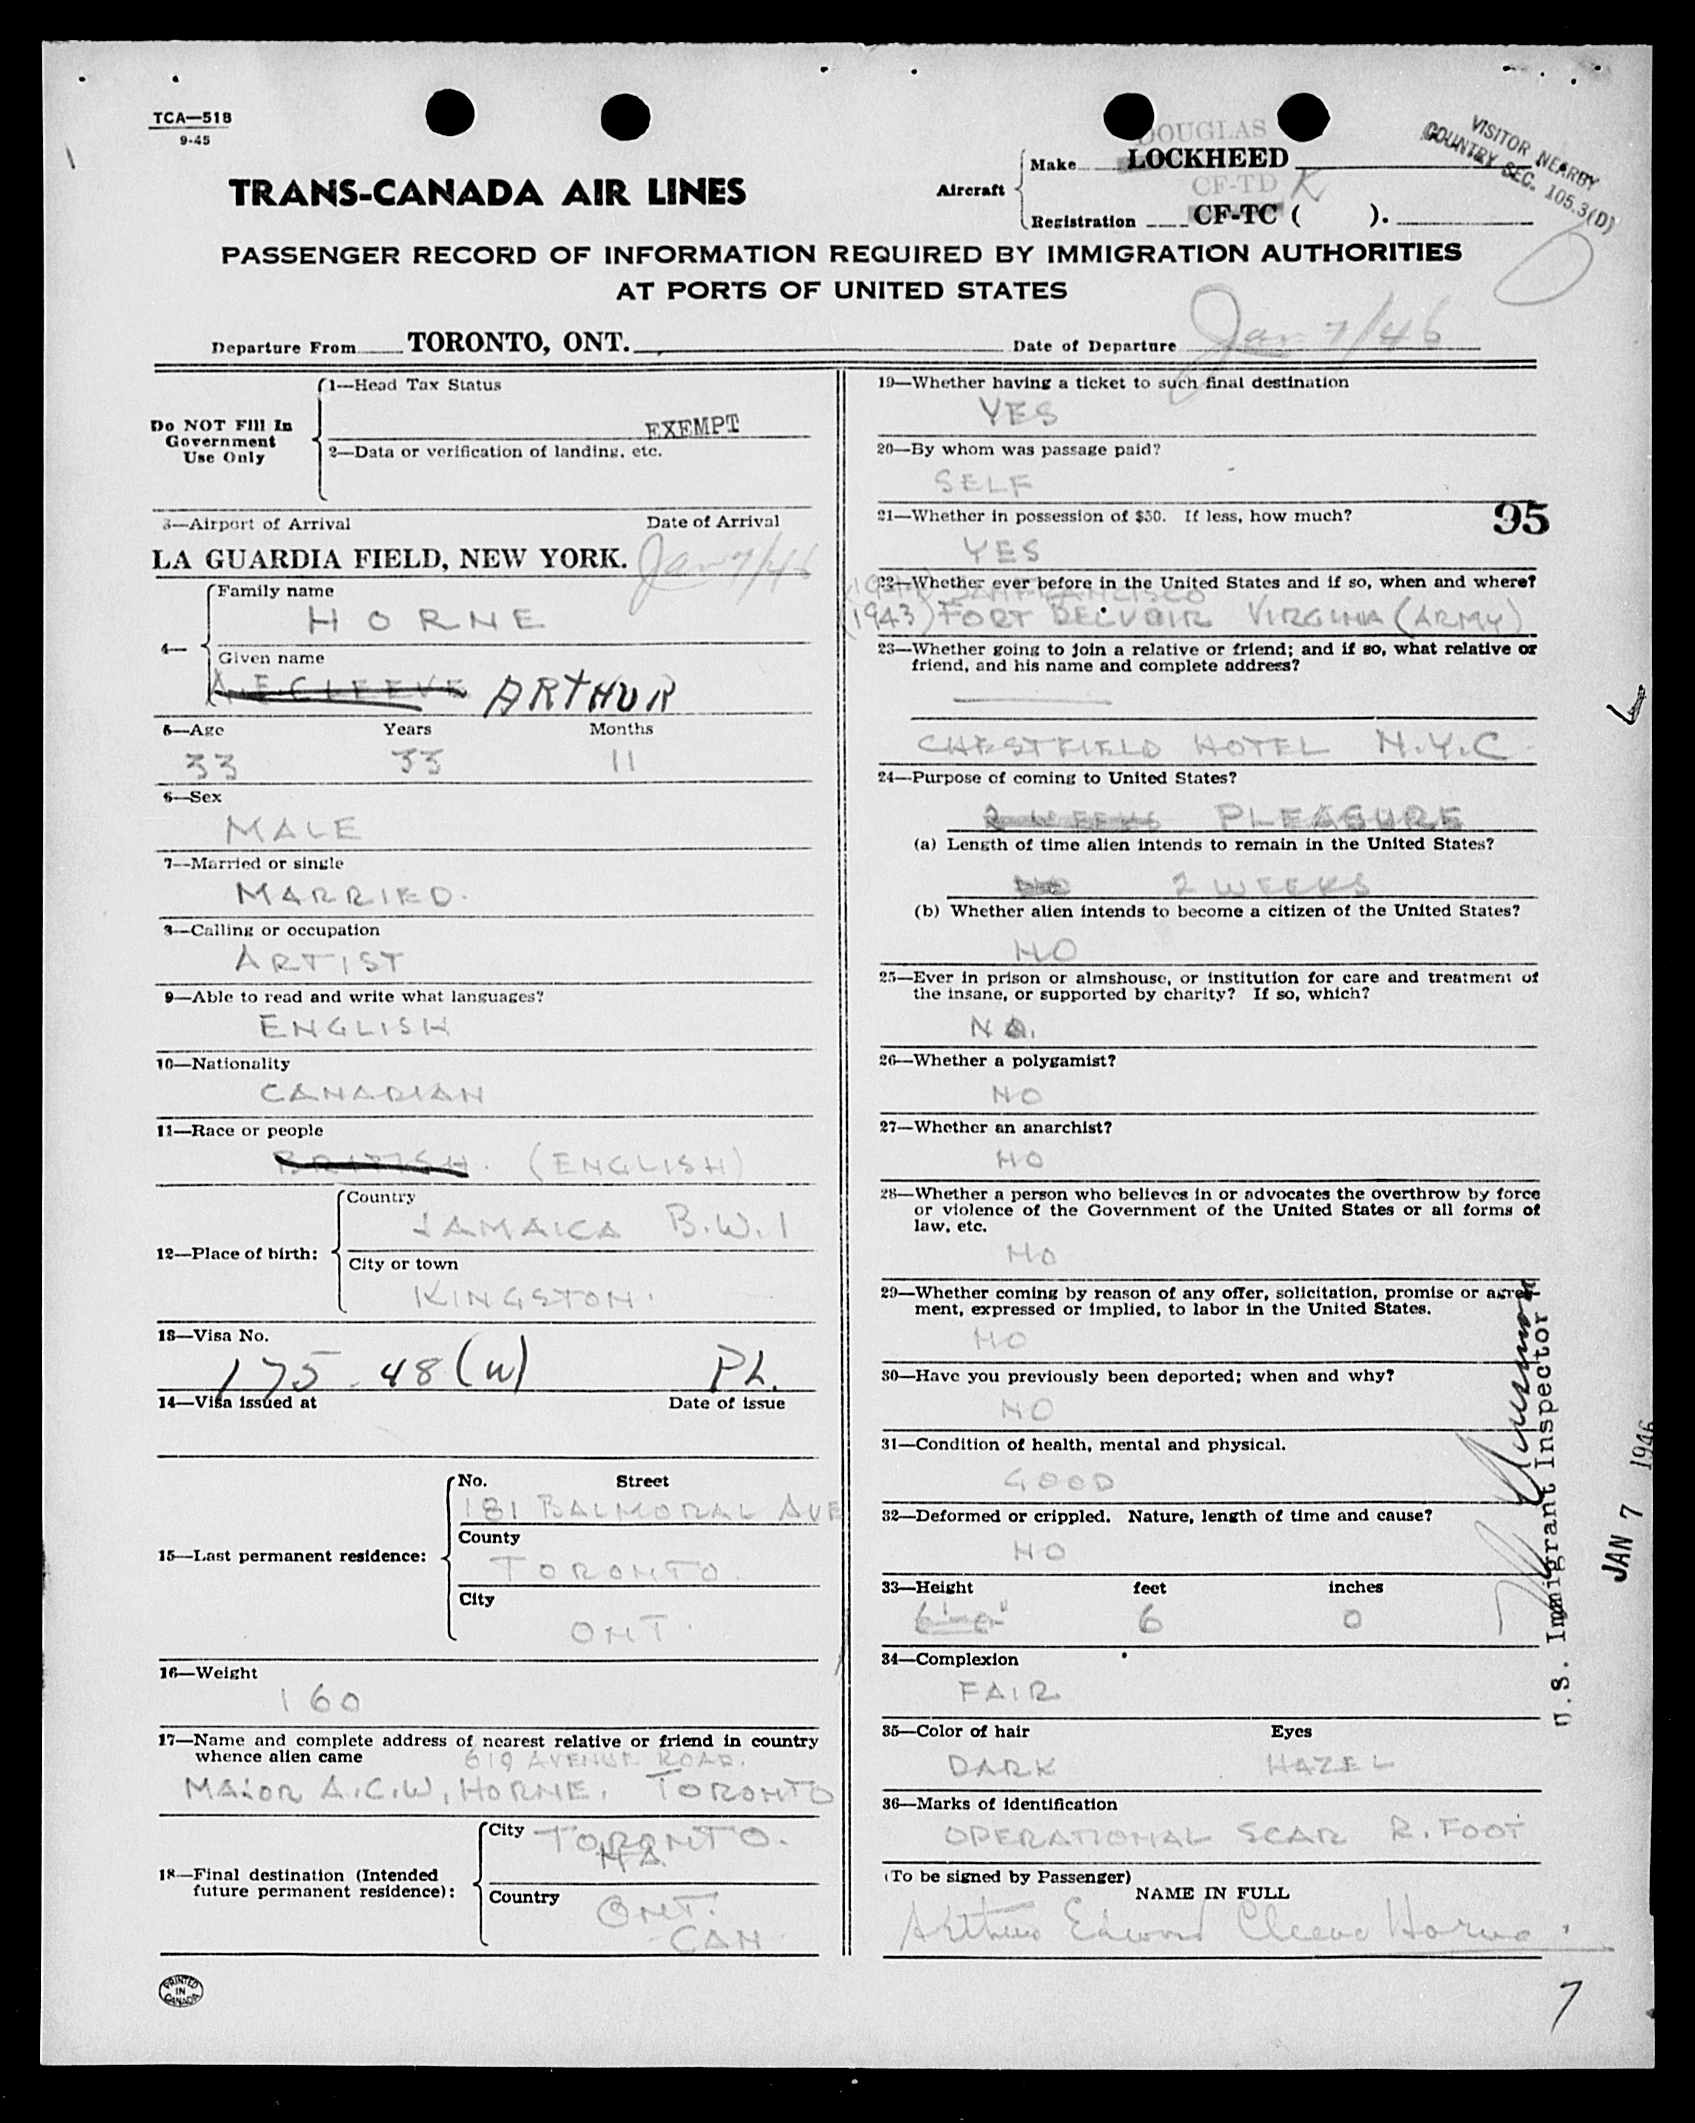 TCA—518
9-45
VISITOR NEARBY
COUNTRY SEC. 105.3(D)
TRANS-CANADA AIR LINES
Aircraft
DOUGLAS
Make LOCKHEED
CF-TD K
Registration CF-TC ( ).
PASSENGER RECORD OF INFORMATION REQUIRED BY IMMIGRATION AUTHORITIES
AT PORTS OF UNITED STATES
Departure From TORONTO, ONT.
Date of Departure Jan 7/46
Do NOT Fill In
Government
Use Only
1—Head Tax Status
EXEMPT
2—Data or verification of landing, etc.
3—Airport of Arrival Date of Arrival
LA GUARDIA FIELD, NEW YORK. Jan 7/46
4—
Family name
HORNE
Given name
A.E.CLEEVE ARTHUR
5—Age Years Months
33 33 11
6—Sex
MALE
7—Married or single
MARRIED.
8—Calling or occupation
ARTIST
9—Able to read and write what languages?
ENGLISH
10—Nationality
CANADIAN
11—Race or people
BRITISH. (ENGLISH)
12—Place of birth:
Country
JAMAICA B.W.I
City or town
KINGSTON.
13—Visa No.
175-48(w) PL.
14—Visa issued at Date of issue
15—Last permanent residence:
No. Street
181 BALMORAL AVE
County
TORONTO.
City
ONT.
16—Weight
160
17—Name and complete address of nearest relative or friend in country
whence alien came 619 AVENUE ROAD.
MAJOR A.C.W. HORNE. TORONTO
18—Final destination (Intended
future permanent residence):
City TORONTO.
Country ONT.
CAN
PRINTED
IN
CANADA
19—Whether having a ticket to such final destination
YES
20—By whom was passage paid?
SELF
21—Whether in possession of $50. If less, how much?
95
YES
22—Whether ever before in the United States and if so, when and where?
SAN FRANCISCO
(1943) FORT BELVOIR VIRGINIA (ARMY)
23—Whether going to join a relative or friend; and if so, what relative or
friend, and his name and complete address?
CHESTFIELD HOTEL N.Y.C.
24—Purpose of coming to United States?
2 WEEKS PLEASURE
(a) Length of time alien intends to remain in the United States?
NO 2 WEEKS
(b) Whether alien intends to become a citizen of the United States?
NO
25—Ever in prison or almshouse, or institution for care and treatment of
the insane, or supported by charity? If so, which?
NO.
26—Whether a polygamist?
NO
27—Whether an anarchist?
NO
28—Whether a person who believes in or advocates the overthrow by force
or violence of the Government of the United States or all forms of
law, etc.
NO
29—Whether coming by reason of any offer, solicitation, promise or agree-
ment, expressed or implied, to labor in the United States.
NO
30—Have you previously been deported; when and why?
NO
31—Condition of health, mental and physical.
GOOD
32—Deformed or crippled. Nature, length of time and cause?
NO
33—Height feet inches
6'-0" 6 0
34—Complexion
FAIR
35—Color of hair Eyes
DARK HAZEL
36—Marks of identification
OPERATIONAL SCAR R. FOOT
(To be signed by Passenger)
NAME IN FULL
Arthur Edward Cleeve Horne.
U.S. Immigrant Inspector
JAN 7 1946
7